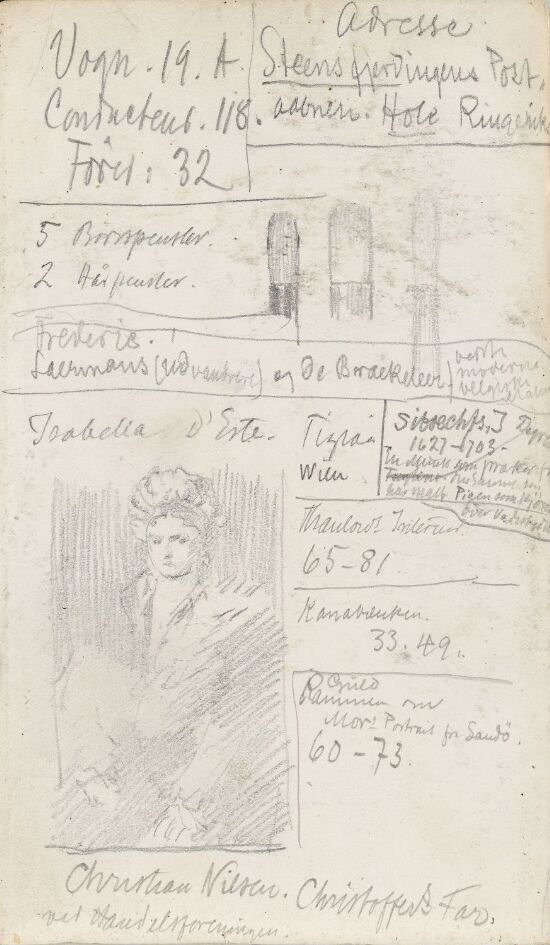 Vogn. 19. A.
Conducteur. 118.
Först: 32
Adresse
Steensfjerdingens Post.
aabneri. Hole Ringerike
5 Börspensler.
2 Hårpensler.
Frederic.
Laermans (Udvandrere) og De Braekeleer
moderne
Isabella D'Este.
Tizian
Wien
1627-1703-
Thaulows Interieur
65-81
Kanabænken.
33. 49.
Guld
Rammen om
Mors Portrait fra Sandö.
60-73.
Christian Nilsen.
ved Handelsforeningen.
Christoffers Far.